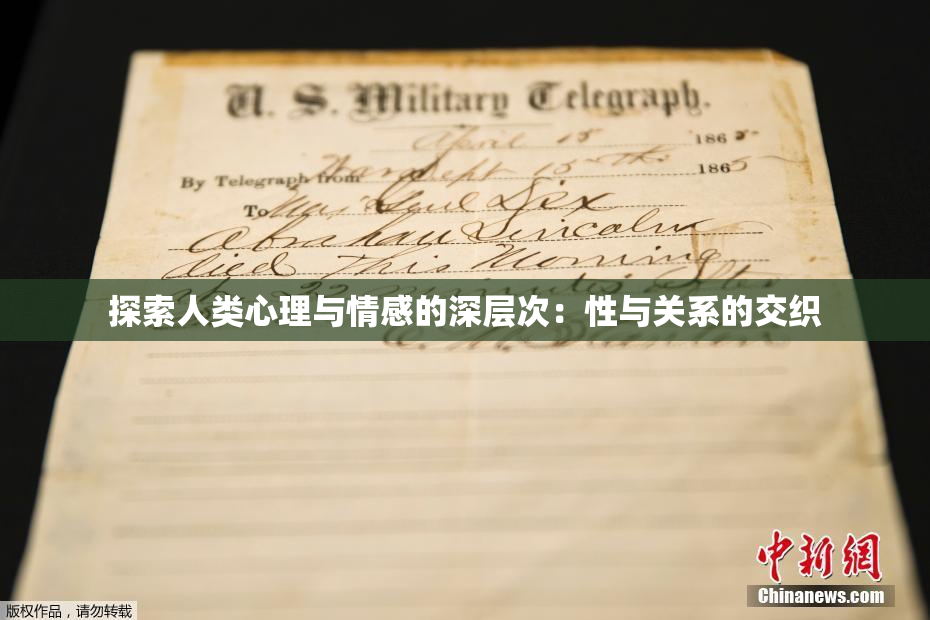 U. S. Military Telegraph.
April 15 1865
By Telegraph from War Dept 15th 1865
To Maj Genl Dix
Abraham Lincoln
died This Morning
22 minutes after
探索人类心理与情感的深层次：性与关系的交织
E. M. Stanton
中新网
Chinanews.com
版权作品，请勿转载